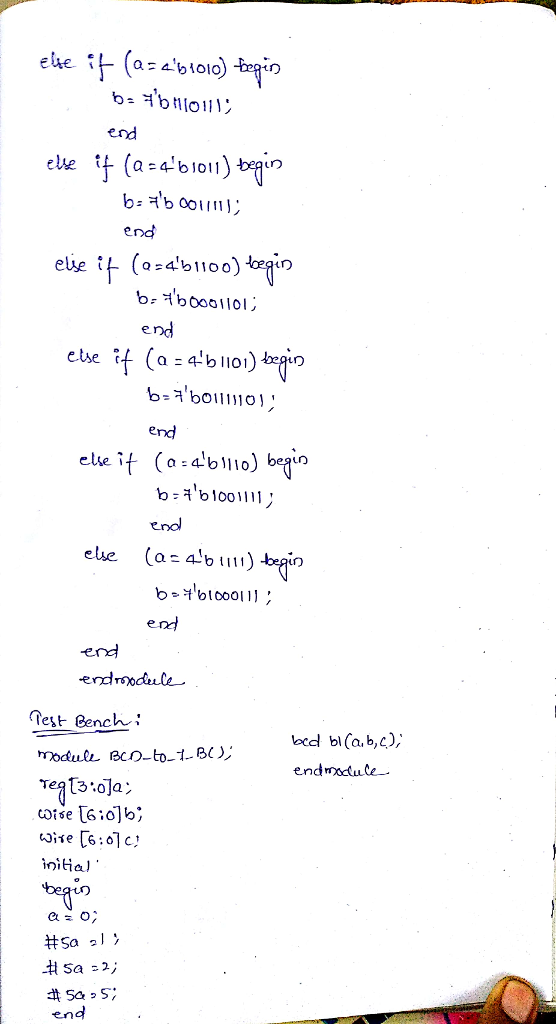 else if (a=4'b1010) begin
b= 7'b1110111;
end
else if (a=4'b1011) begin
b= 7'b0011111;
end
else if (a=4'b1100) begin
b= 7'b0001101;
end
else if (a=4'b1101) begin
b=7'b01111101;
end
else if (a=4'b1110) begin
b=7'b1001111;
end
else (a=4'b1111) begin
b=7'b1000111;
end
end
endmodule
Test Bench:
module BCD_to_7_B();
reg[3:0]a;
wire [6:0]b;
wire [6:0]c;
initial
begin
a=0;
#5a=1;
#5a=2;
#5a=5;
end
bcd b1(a,b,c);
endmodule